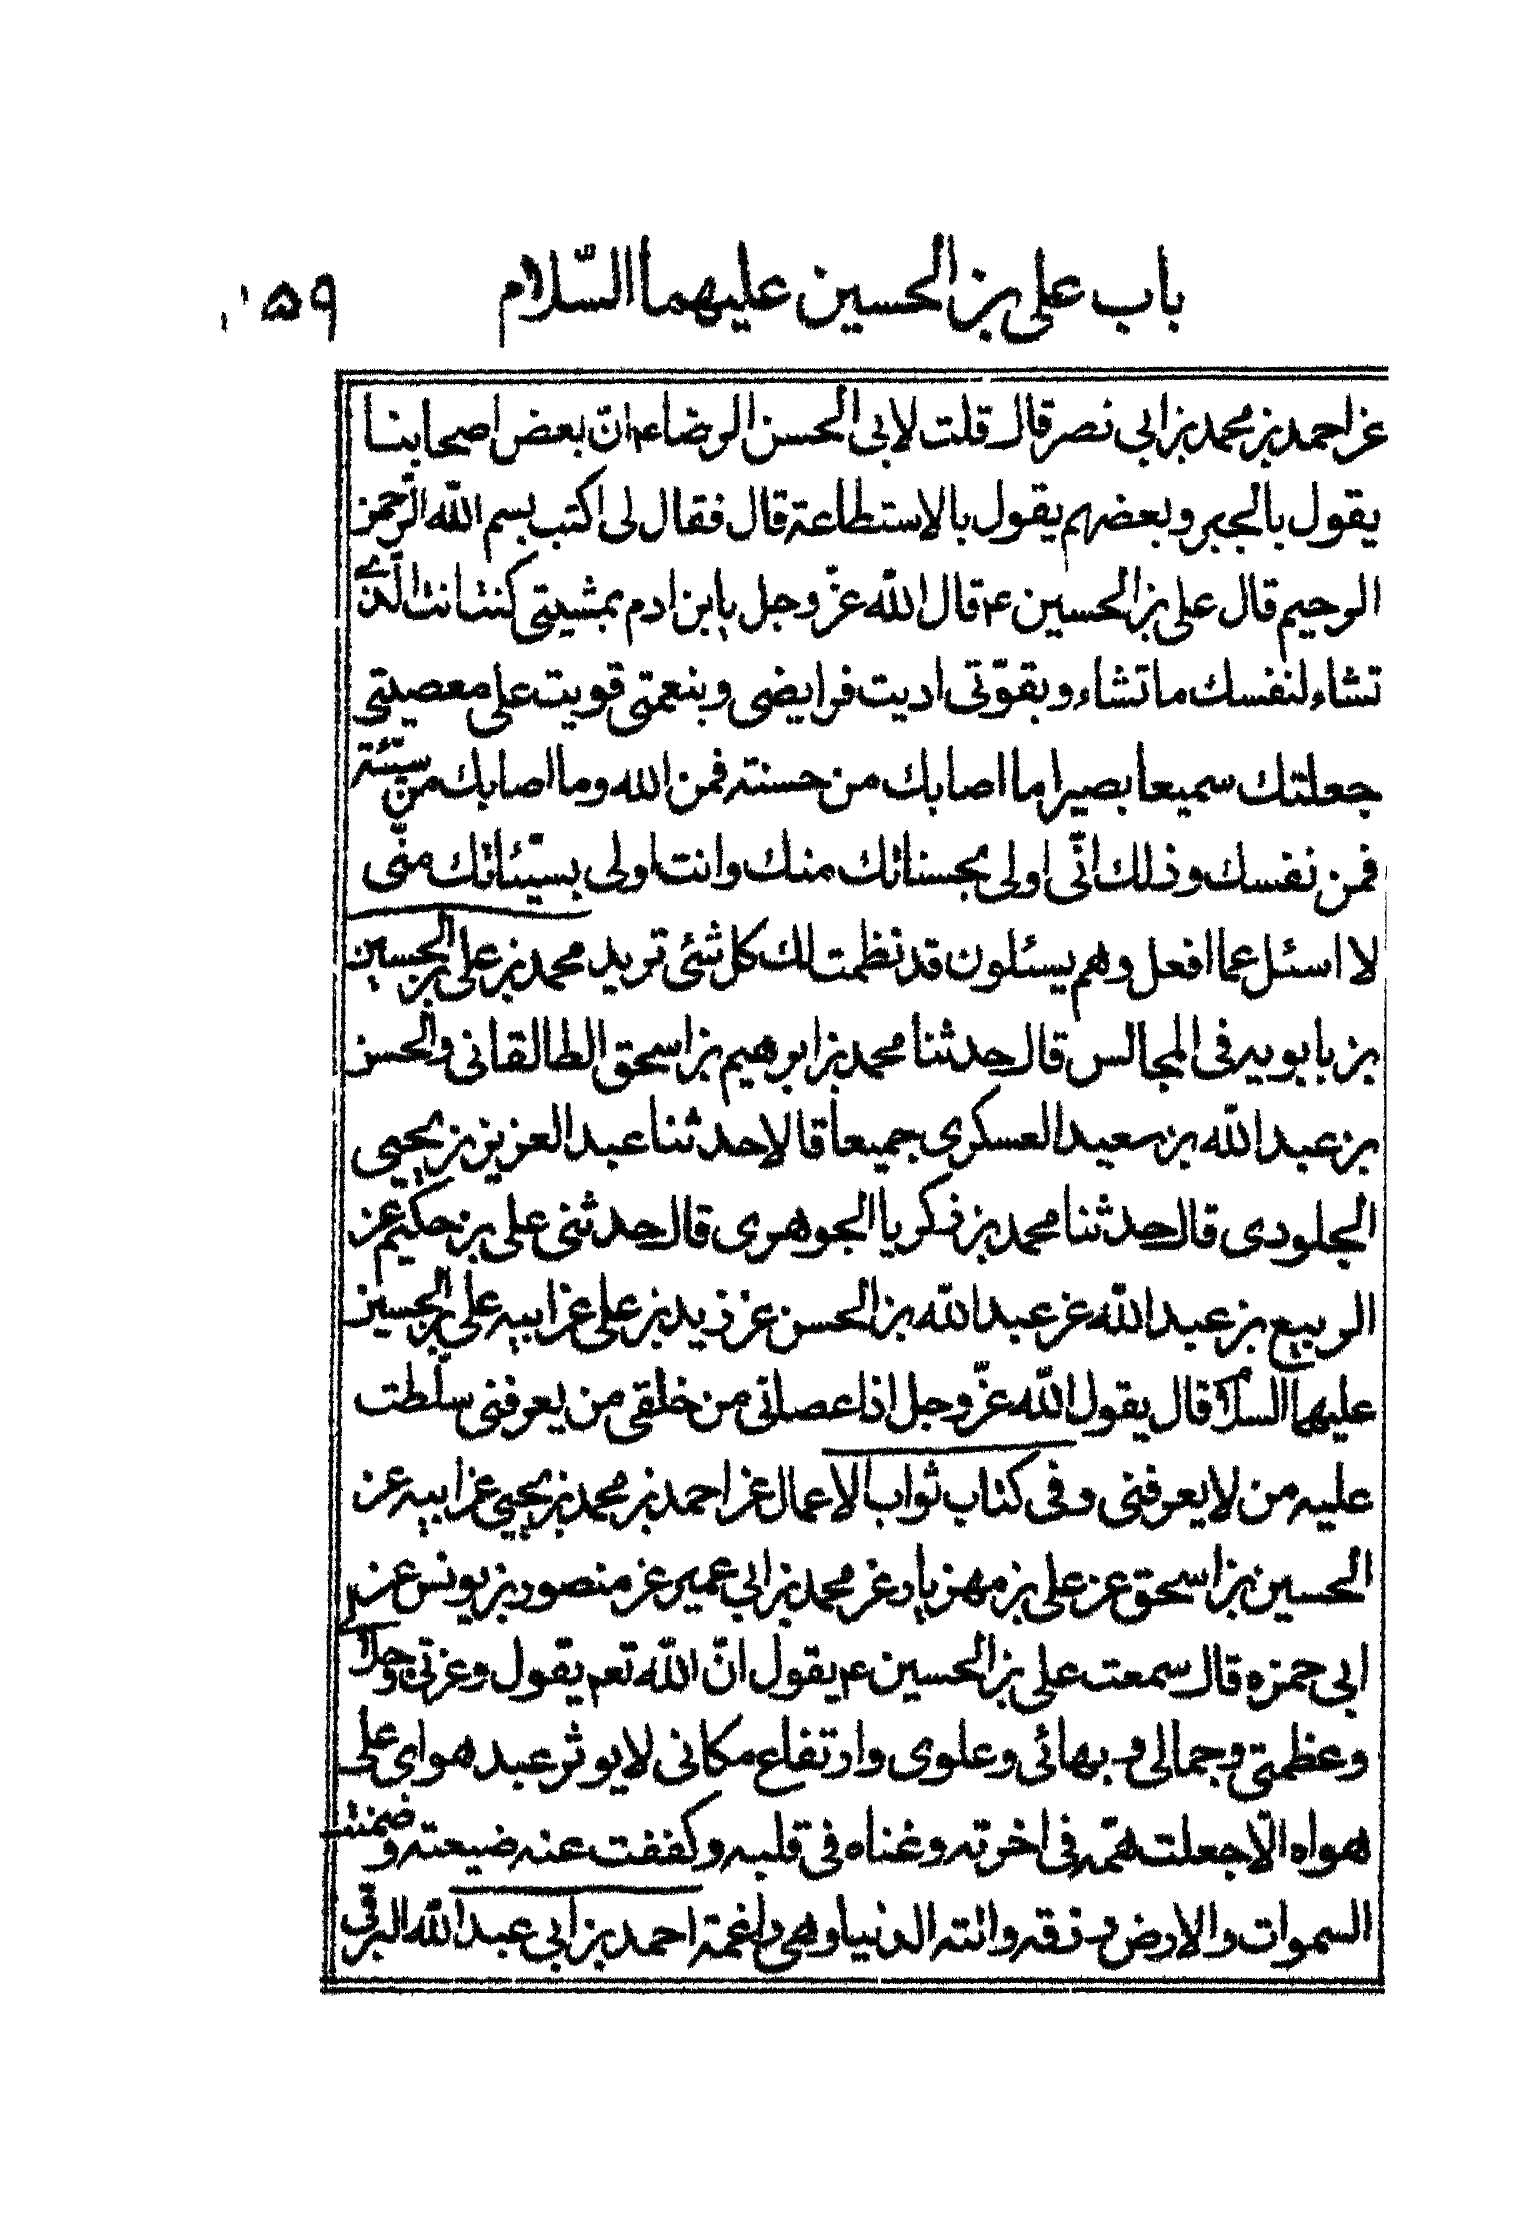 باب على بن الحسين عليهما السّلام ١٥٩
عن احمد بن محمد بن ابى نصر قال قلت لابى الحسن الرضاء ع انّ بعض اصحابنا
يقول بالجبر وبعضهم يقول بالاستطاعة قال فقال لى اكتب بسم اللّه الرّحمن
الرحيم قال على بن الحسين ع قال اللّه عزّ وجل يا بن ادم بمشيتى كنت انت الّذى
تشاء لنفسك ما تشاء وبقوّتى اديت فرايضى وبنعمتى قويت على معصيتى
جعلتك سميعا بصيرا ما اصابك من حسنة فمن الله وما اصابك من سيّئة
فمن نفسك وذلك انّى اولى بحسناتك منك وانت اولى بسيّئاتك منّى
لا اسئل عما افعل وهم يسئلون قد نظمت لك كل شئى تريد محمد بن على بن الحسين
بن بابويه فى المجالس قال حدثنا محمد بن ابرهيم بن اسحق الطالقانى والحسن
بن عبد اللّه بن سعيد العسكرى جميعا قالا حدثنا عبد العزيز بن يحيى
الجلودى قال حدثنا محمد بن ذكريا الجوهرى قال حدثنى على بن حكيم عن
الربيع بن عبد اللّه عن عبد اللّه بن الحسن عن زيد بن على عن ابيه على بن الحسين
عليهما السلام قال يقول اللّه عزّ وجل اذا عصانى من خلقى من يعرفنى سلّطت
عليه من لا يعرفنى وفى كتاب ثواب الاعمال عن احمد بن محمد بن يحيى عن ابيه عن
الحسين بن اسحق عن على بن مهزيار عن محمد بن ابى عمير عن منصور بن يونس عن
ابى حمزه قال سمعت على بن الحسين ع يقول انّ اللّه تعم يقول وعزتى وجلالى
وعظمتى وجمالى وبهائى وعلوى وارتفاع مكانى لا يوثر عبد هواى على
هواه الّا جعلت همّه فى اخرته وغناه فى قلبه وكففت عنه ضيعته وضمنت
السموات والارض رزقه واتته الدنيا وهى راغمة احمد بن ابى عبد اللّه البرقّى